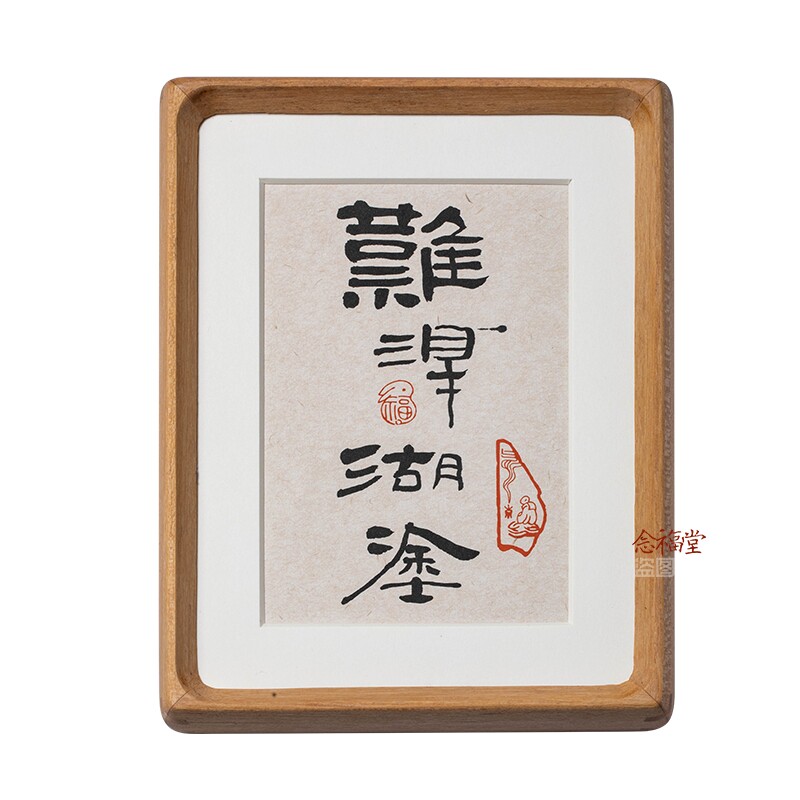 難淂湖塗
福
念福堂
盗图